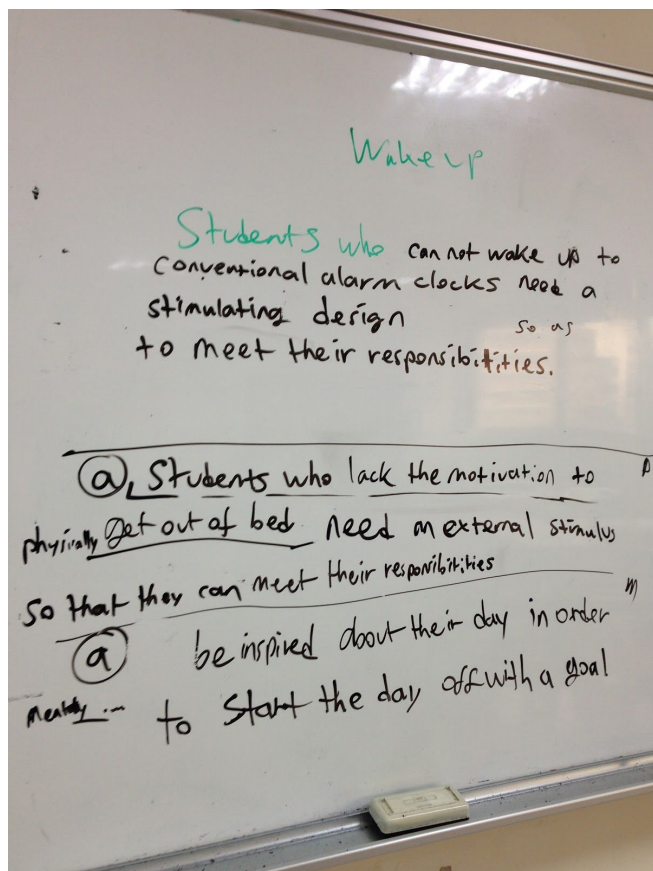 Wake up
Students who can not wake up to
conventional alarm clocks need a
stimulating design so as
to meet their responsibilities.
a, Students who lack the motivation to
physically get out of bed need an external stimulus
so that they can meet their responsibilities
a be inspired about their day in order
mentally... to start the day off with a goal